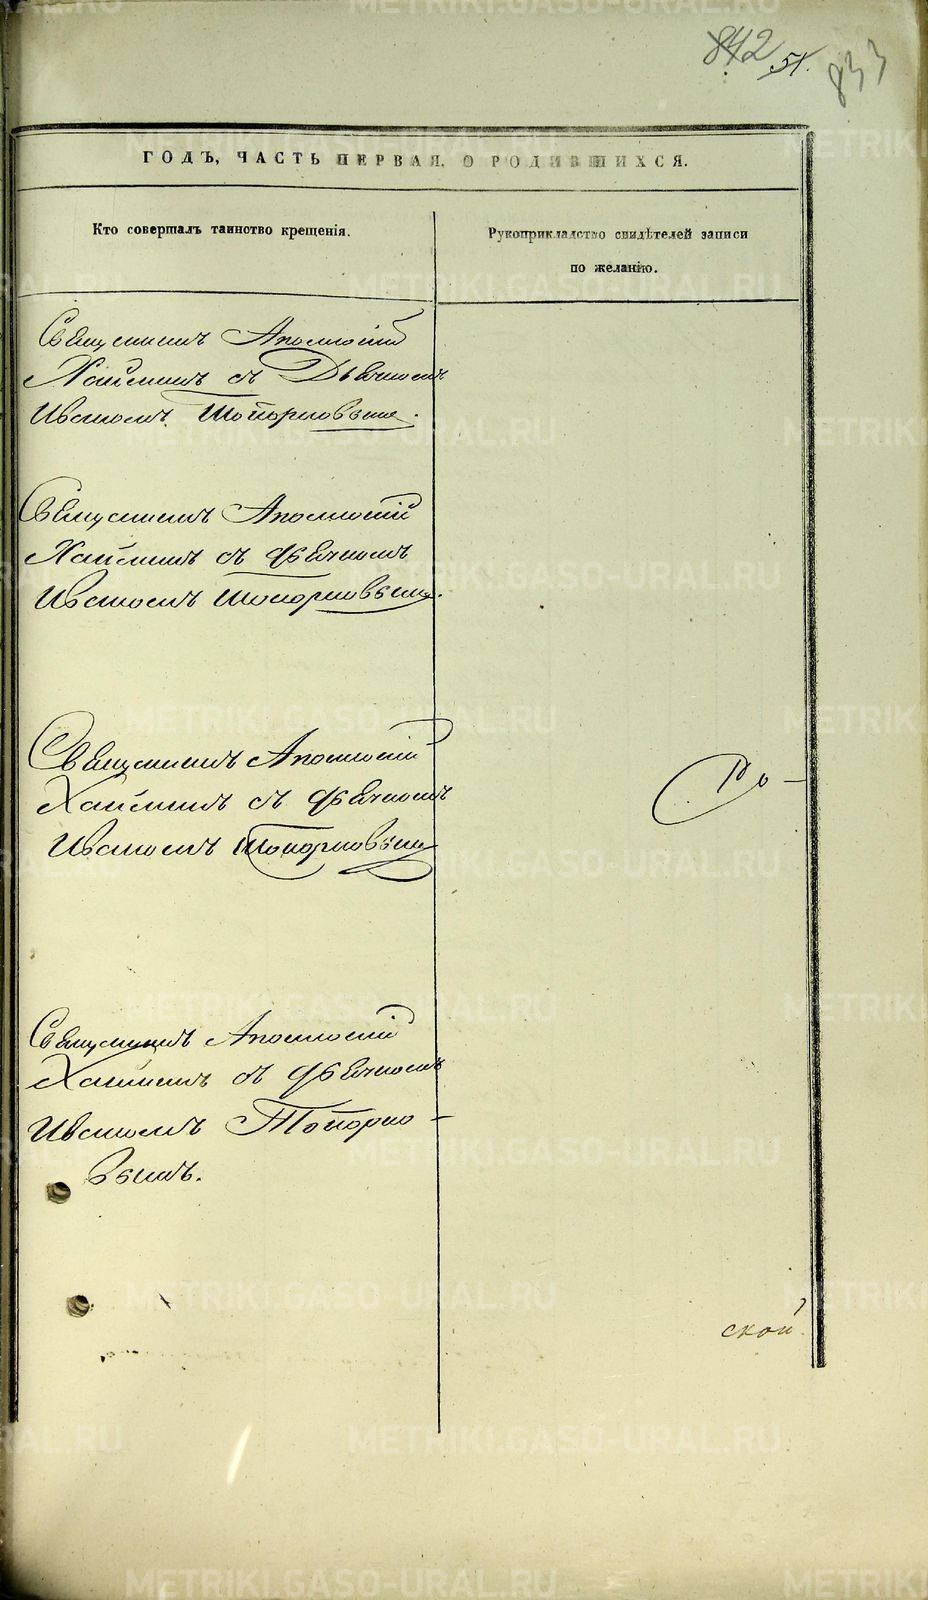 842 51. 833
ГОДЪ, ЧАСТЬ ПЕРВАЯ, О РОДИВШИХСЯ.
Кто совершалъ таинство крещенія.
Рукоприкладство свидѣтелей записи
по желанію.
Священникъ Аполлоній
Хайминъ съ Дьячкомъ
Иваномъ Топорковымъ.
Священникъ Аполлоній
Хайминъ съ дьячкомъ
Иваномъ Топорковымъ.
Священникъ Аполлоній
Хайминъ съ дьячкомъ
Иваномъ Топорковымъ
Священникъ Аполлоній
Хайминъ съ дьячкомъ
Иваномъ Топорко-
вымъ.
ской
METRIKI.GASO-URAL.RU